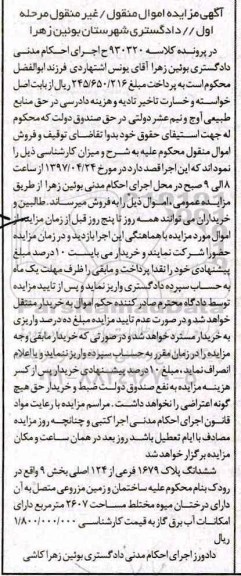 آگهی مزایده اموال منقول / غیر منقول مرحله
اول // دادگستری شهرستان بوئین زهرا
در پرونده کلاسه ۹۳۰۳۲۰ ح اجرای احکام مدنی
دادگستری بوئین زهرا آقای یونس اشتهاردی فرزند ابوالفضل
محکوم است به پرداخت مبلغ ۲۴۵/۶۵۰/۲۱۶ ریال از بابت اصل
خواسته و خسارت تاخیر تادیه و هزینه دادرسی در حق منابع
طبیعی آوج و نیم عشر دولتی در حق صندوق دولت که محکوم
له جهت استیفای حقوق خود بدوا تقاضای توقیف و فروش
اموال منقول محکوم علیه به شرح و میزان کارشناسی ذیل را
نموداند که این اجرا قصد دارد در مورخ ۱۳۹۷/۰۴/۲۴ از ساعت
۸ الی ۹ صبح در محل اجرای احکام مدنی بوئین زهرا از طریق
مزایده عمومی، اموال ذیل را به فروش میرساند. طالبین و
خریداران می توانند همه روز تا پنج روز قبل از زمان مزایده
اموال مورد مزایده با هماهنگی این اجرا بازدید و در زمان مزایده
حضور شرکت نمایند و خریدار می بایست ۱۰ درصد مبلغ
پیشنهادی خود را نقدا پرداخت و مابقی را ظرف مهلت یک ماه
به حساب سپرده دادگستری واریز نماید و پس از تایید مزایده
توسط دادگاه محترم صادر کننده حکم اموال به خریدار منتقل
خواهد شد و در صورت عدم تایید مزایده مبلغ ده درصد واریزی
به خریدار مسترد خواهد شد و در صورتی که خریدار مابقی وجه
مزایده را در زمان مقرر به حساب سپرده واریز ننماید و یا اعلام
انصراف نماید، مبلغ ۱۰ درصد پیشنهادی خریدار پس از کسر
هزینه مزایده به نفع صندوق دولت ضبط و خریدار حق هیچ
گونه اعتراضی را نخواهد داشت. مراسم مزایده با رعایت مواد
قانون اجرای احکام مدنی اجرا کتبی و چنانچه روز مزایده
مصادف با ایام تعطیل باشد روز بعد در همان ساعت و مکان
مزایده برگزار خواهد شد
ششدانگ پلاک ۱۶۷۹ فرعی از ۱۲۴ اصلی بخش ۹ واقع در
رودک بنام محکوم علیه ساختمان و زمین مزروعی متصل به آن
دارای درختان میوه مختلط مساحت ۲۶۰۷ مترمربع دارای
امکانات آب برق گاز به قیمت کارشناسی ۱/۸۰۰/۰۰۰/۰۰۰
ریال
دادورز اجرای احکام مدنی دادگستری بوئین زهرا کاشی